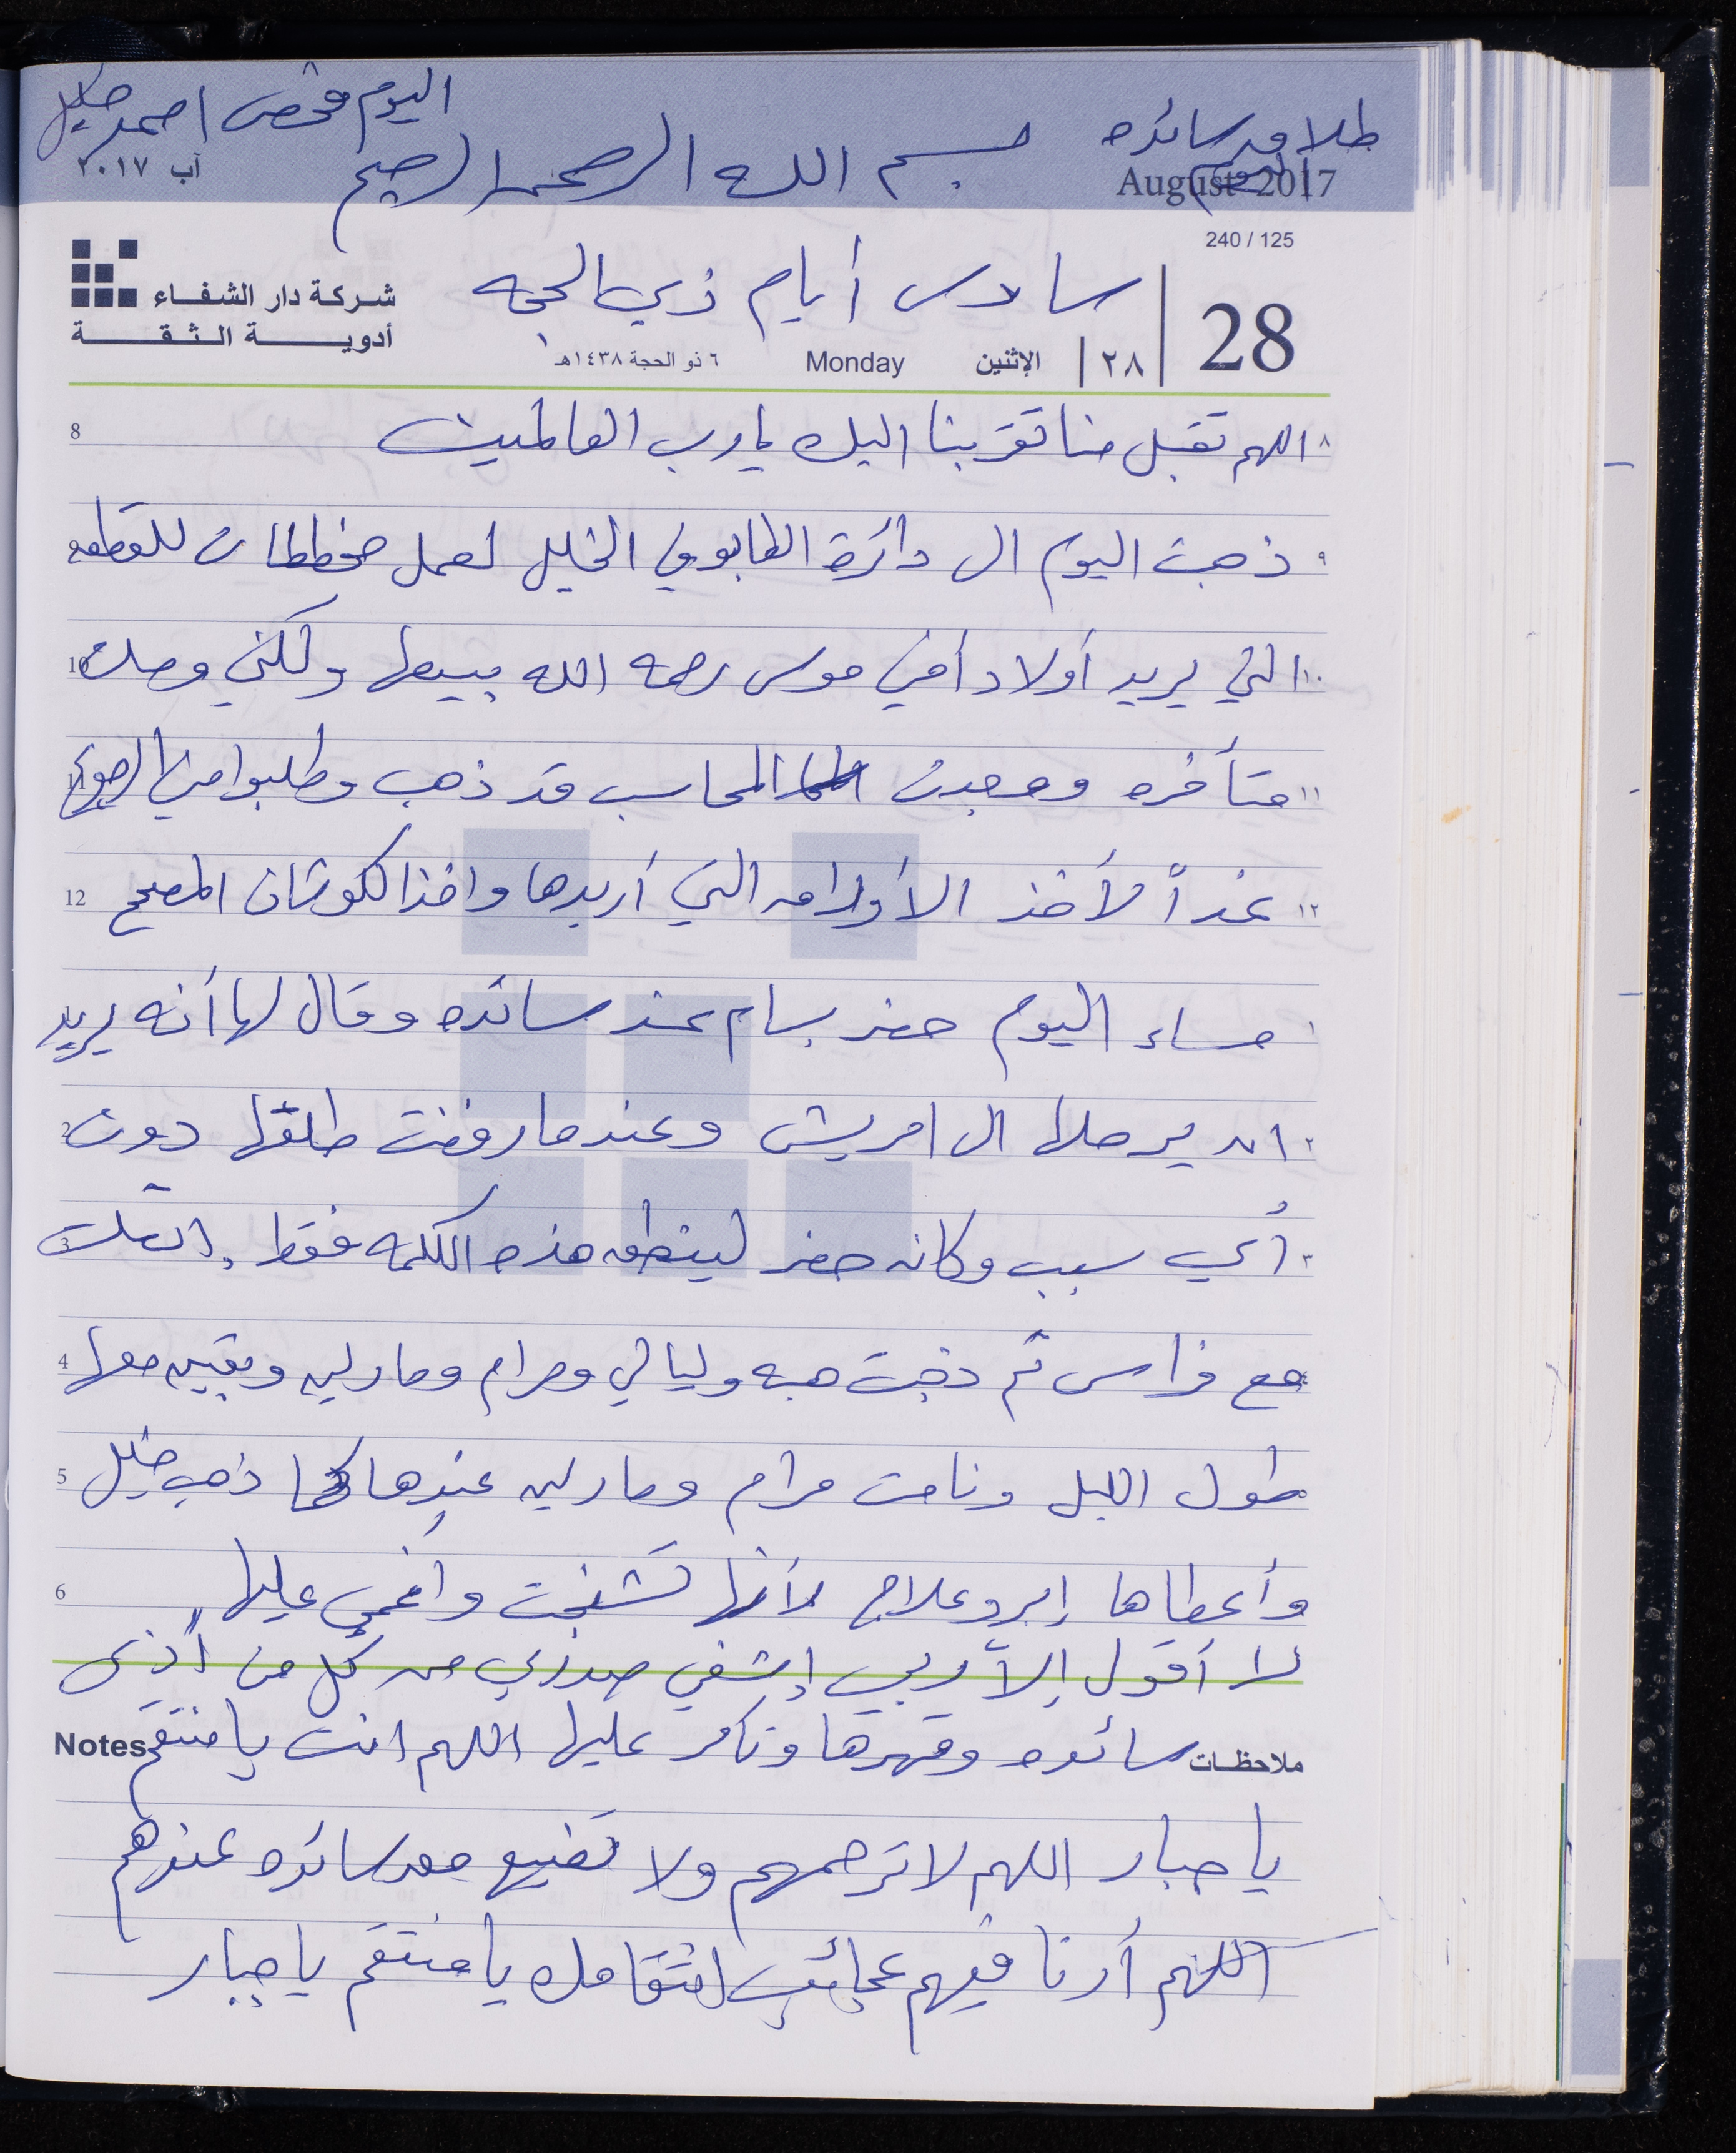 اليوم فحص احمد خليل
طلاق سائده
اليوم
August 2017
آب ٢٠١٧
بسم الله الرحمن الرحيم
240 / 125
سادس أيام ذي الحجه
شركة دار الشفاء
أدوية الثقة
28
٢٨ الإثنين Monday ٦ ذو الحجة ١٤٣٨هـ
٨ اللهم تقبل منا تقربنا اليك يا رب العالمين 8
٩ ذهبت اليوم الى دائرة الطابو في الخليل لعمل مخططات للقطعه
١٠ التي يريد أولاد أمين موسى رحمه الله بيعها ولكني وصلت 10
١١ متأخره ووجدت المحاسب قد ذهب وطلبوا مني الرجوع 11
١٢ غداً لأخذ الأوراق التي أريدها واخذ الكوشان المصحح 12
١ مساء اليوم حضر بسام عند سائده وقال لها أنه يريد 1
٢ ان يرحلها الى امريش وعندما رفضت طلقها دون 2
٣ أي سبب وكانه حضر لينطق هذه الكلمه فقط. اتصلت 3
مع فراس ثم ذهبت هبه وليالي ومرام ومارلين وبقين معها 4
طول الليل ونامت مرام ومارلين عندها كما ذهب خليل 5
وأعطاها إبر وعلاج لأنها تشنجت وأغمي عليها 6
لا أقول إلا ربي إشفي صدري من كل من أذى
ملاحظات سائده وقهرها وتآمر عليها اللهم انت يا منتقم Notes
يا جبار اللهم لا ترحمهم ولا تضيع حق سائده عندهم
اللهم أرنا فيهم عجائب انتقامك يا منتقم يا جبار